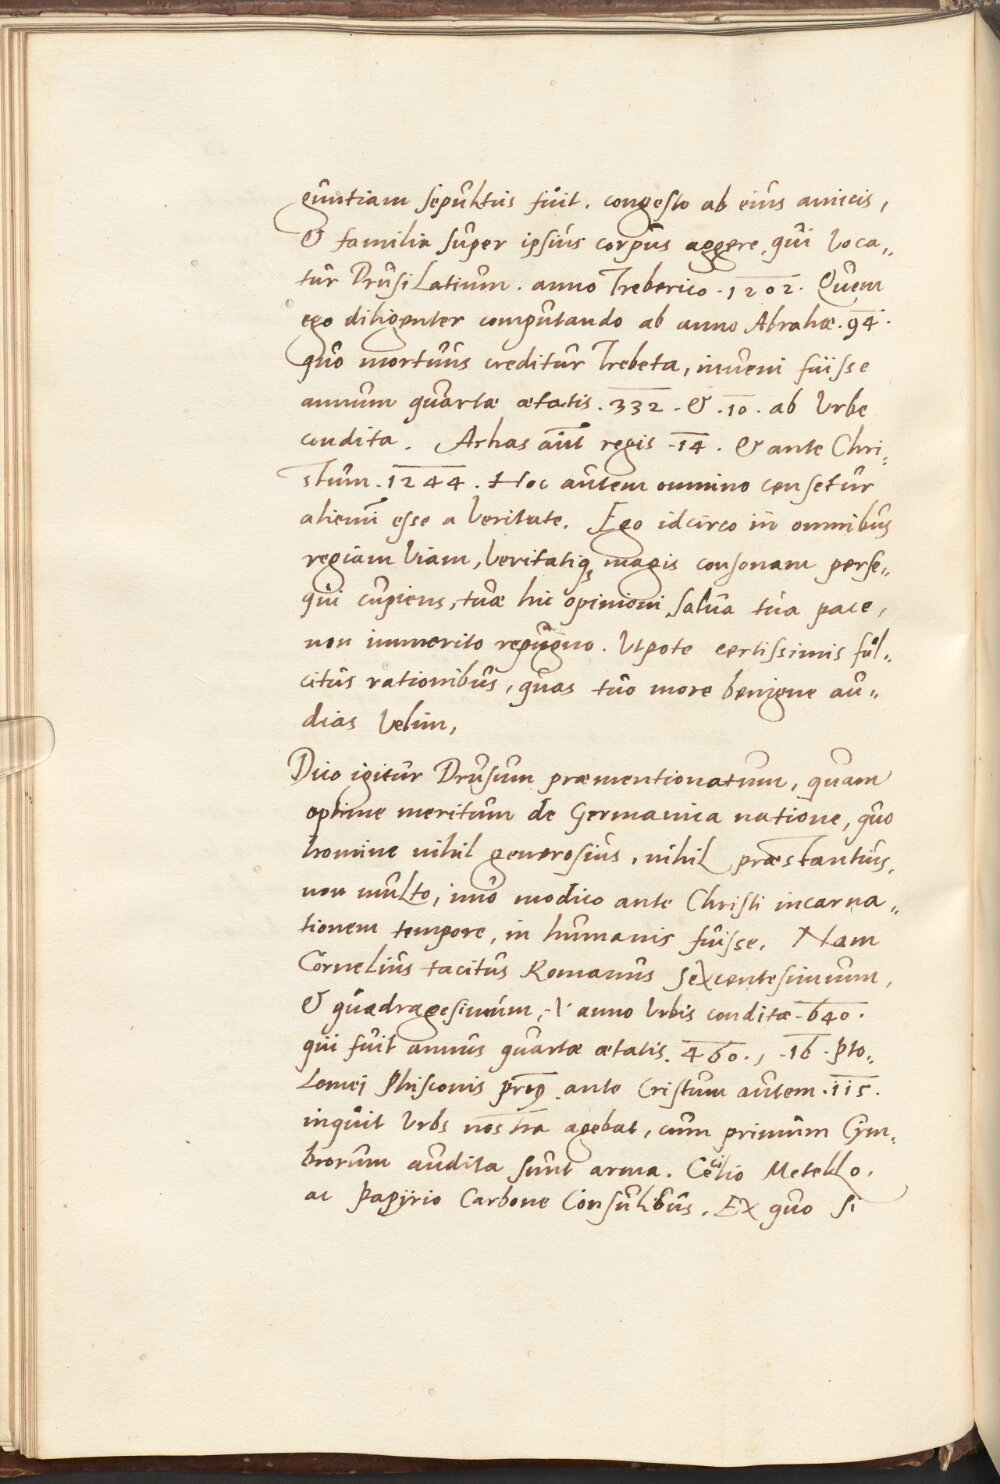 guntiam sepultus fuit. congesto ab eius amicis,
& familia super ipsius corpus aggere, qui voca„
tur DrusiLatium. anno Treberico. 1202. Quem
ego diligenter computando ab anno Abrahæ. 94.
quo mortuus creditur Trebeta, inueni fuisse
annum quartæ ætatis. 332. & .10. ab Vrbe
condita. Arhas aūt regis .14. & ante Chri„
stum. 1244. Hoc autem omnino censetur
alienū esse a veritate. Ego idcirco in omnibus
regiam viam, veritatiq₃ magis consonam perse„
qui cupiens, tuæ hic opinioni salua tua pace,
non immerito repugno. Vtpote certissimis ful„
citus rationibus, quas tuo more benigne au„
dias velim,
Dico igitur Drusum præmentionatum, quam
optime meritum de Germanica natione, quo
homine nihil generosius, nihil præstantius,
non multo, imo modico ante Christi incarna„
tionem tempore, in humanis fuisse. Nam
Cornelius tacitus Romanus sexcentesimum,
& quadragesimum, anno Vrbis conditæ. 640.
qui fuit annus quartæ ætatis. 460., .16. Pto„
Lomei Phisconis ante Cristum autem .115.
inquit Vrbs nostra agebat, cum primum Cym„
brorum audita sunt arma. Cecilio Metello,
ac Papyrio Carbone Consulibus. Ex quo si